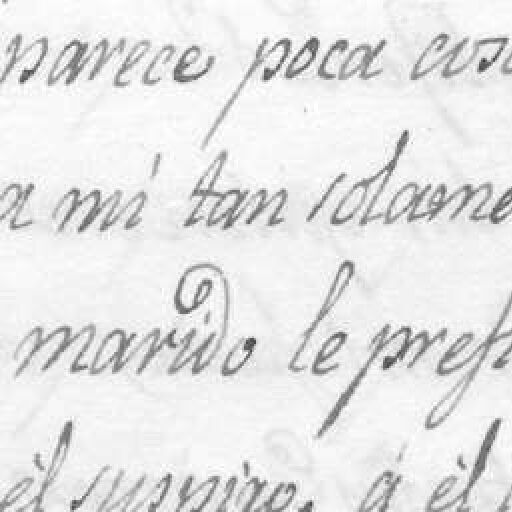 parece poca cosa
a mí tan solame
marido. le prest
èl suspiro. á èl